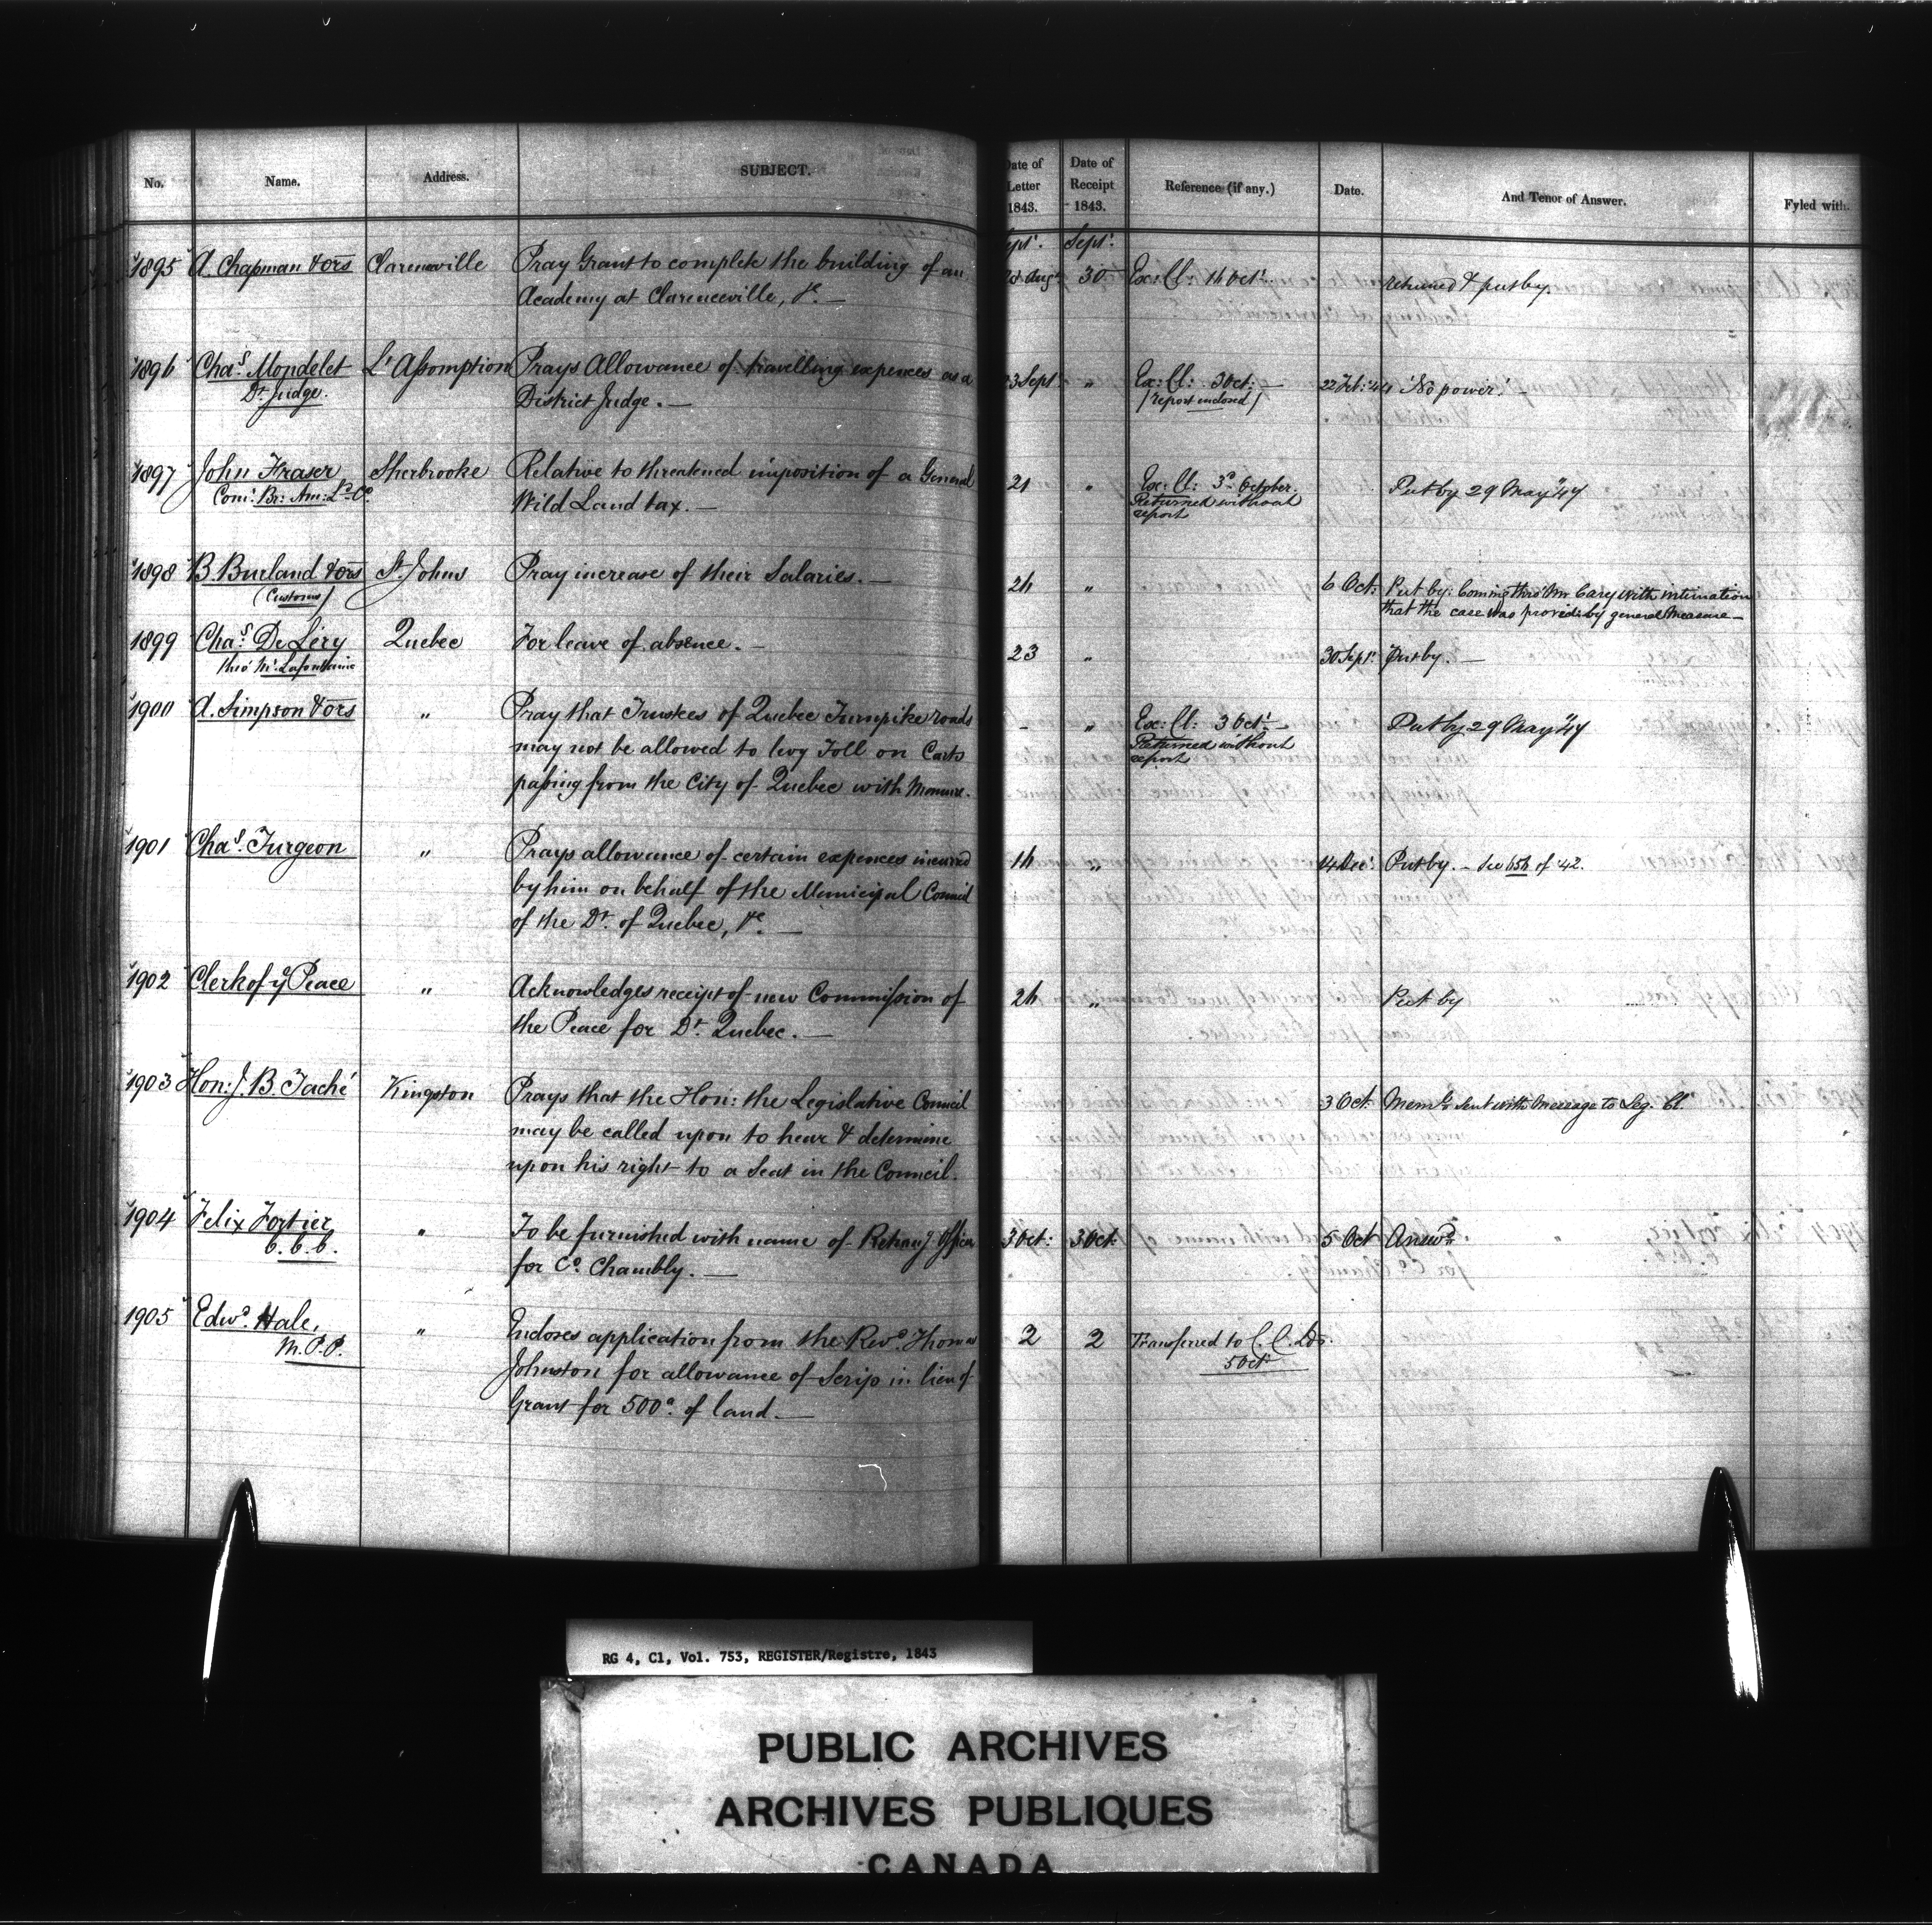 No. Name. Address. SUBJECT. Date of Letter 1843. Date of Receipt 1843. Reference (if any.) Date. And Tenor of Answer. Fyled with.
Sept. Sept.
1895 A. Chapman & ors Clarenceville Pray Grant to complete the building of an Aug. 30 Ex: Cl: 14 Oct. returned & put by.
Academy at Clarenceville, &c. —
1896 Chas. Mondelet L'Assomption Prays Allowance of travelling expences as a 23 Sept " Ex: Cl: 3 Oct: — 22 Feb: 44 'No power.' —
Dt. Judge. District Judge. — (report enclosed)
1897 John Fraser Sherbrooke Relative to threatened imposition of a General 21 " Ex: Cl: 3d. October. Put by 29 May "47
Com: Br: Am: Ld. Co. Wild Land tax. — Returned without
report
1898 B. Burland & ors St. Johns Pray increase of their Salaries. — 24 " 6 Oct: Put by: Coming thro' Mr Cary with intimation
(Customs) that the case was provid: by general Measure —
1899 Chas. De Léry Quebec For leave of absence. — 23 " 30 Sept. Put by. —
thro' Mr. Lafontaine
1900 A. Simpson & ors " Pray that Trustees of Quebec Turnpike roads - " Ex: Cl: 3 Oct. — Put by 29 May "47
may not be allowed to levy Toll on Carts Returned without
passing from the City of Quebec with Manure. report
1901 Chas. Turgeon " Prays allowance of certain expences incurred 14 " 14 Dec: Put by. — See 654 of '42.
by him on behalf of the Municipal Council
of the Dt. of Quebec, &c. —
1902 Clerk of ye Peace " Acknowledges receipt of new Commission of 24 " Put by
the Peace for Dt. Quebec. —
1903 Hon: J. B. Taché Kingston Prays that the Hon: the Legislative Council 3 Oct: Meml. sent with Message to Leg. Cl.
may be called upon to hear & determine
upon his right to a Seat in the Council.
1904 Felix Fortier " To be furnished with name of Retung Officer 3 Oct: 3 Oct: 5 Oct Answd.
C. C. C. for Co. Chambly. —
1905 Edwd. Hale, " Encloses application from the Revd. Thomas 2 2 Transferred to C. C. Lds.
M.P.P. Johnston for allowance of Scrip in lieu of 5 Oct
Grant for 500a. of land. —
RG 4, C1, Vol. 753, REGISTER/Registre, 1843
PUBLIC ARCHIVES
ARCHIVES PUBLIQUES
CANADA